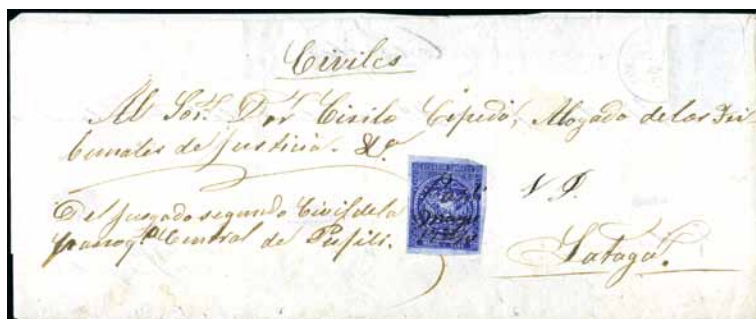 Civiles
Al Sor. Dor. Cirilo Cepeda, Abogado de los Tri-
bunales de Justicia. &a.
Del Juzgado segundo Civil de la
parroqa. Central de Pujilí.
Latagá.